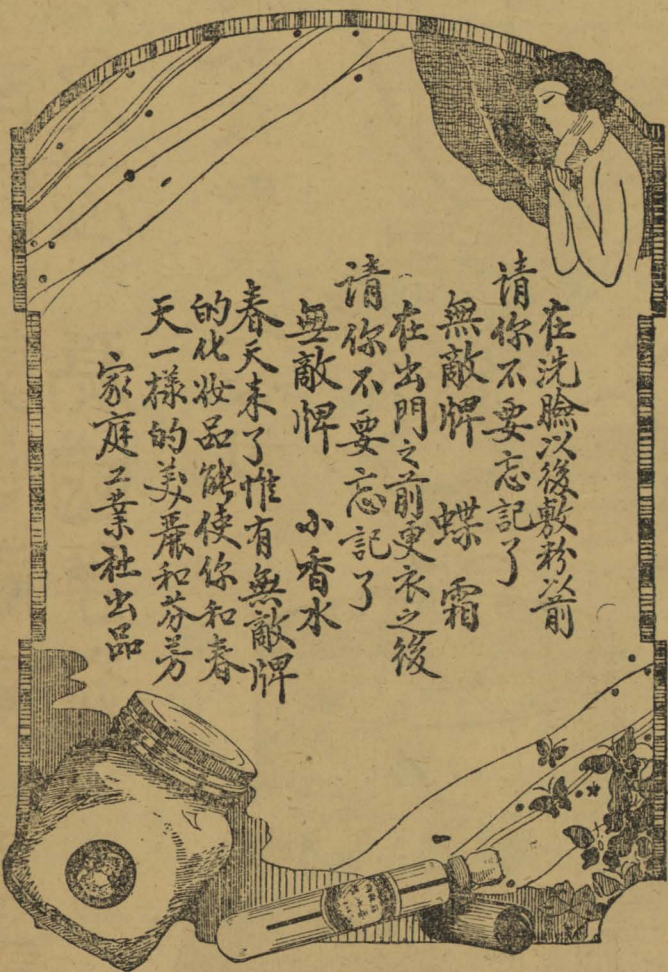 在洗臉以後敷粉以前
請你不要忘記了
無敵牌 蝶霜
在出門之前更衣之後
請你不要忘記了
無敵牌 小香水
春天来了惟有無敵牌
的化妝品能使你和春
天一樣的美麗和芬芳
家庭工業社出品